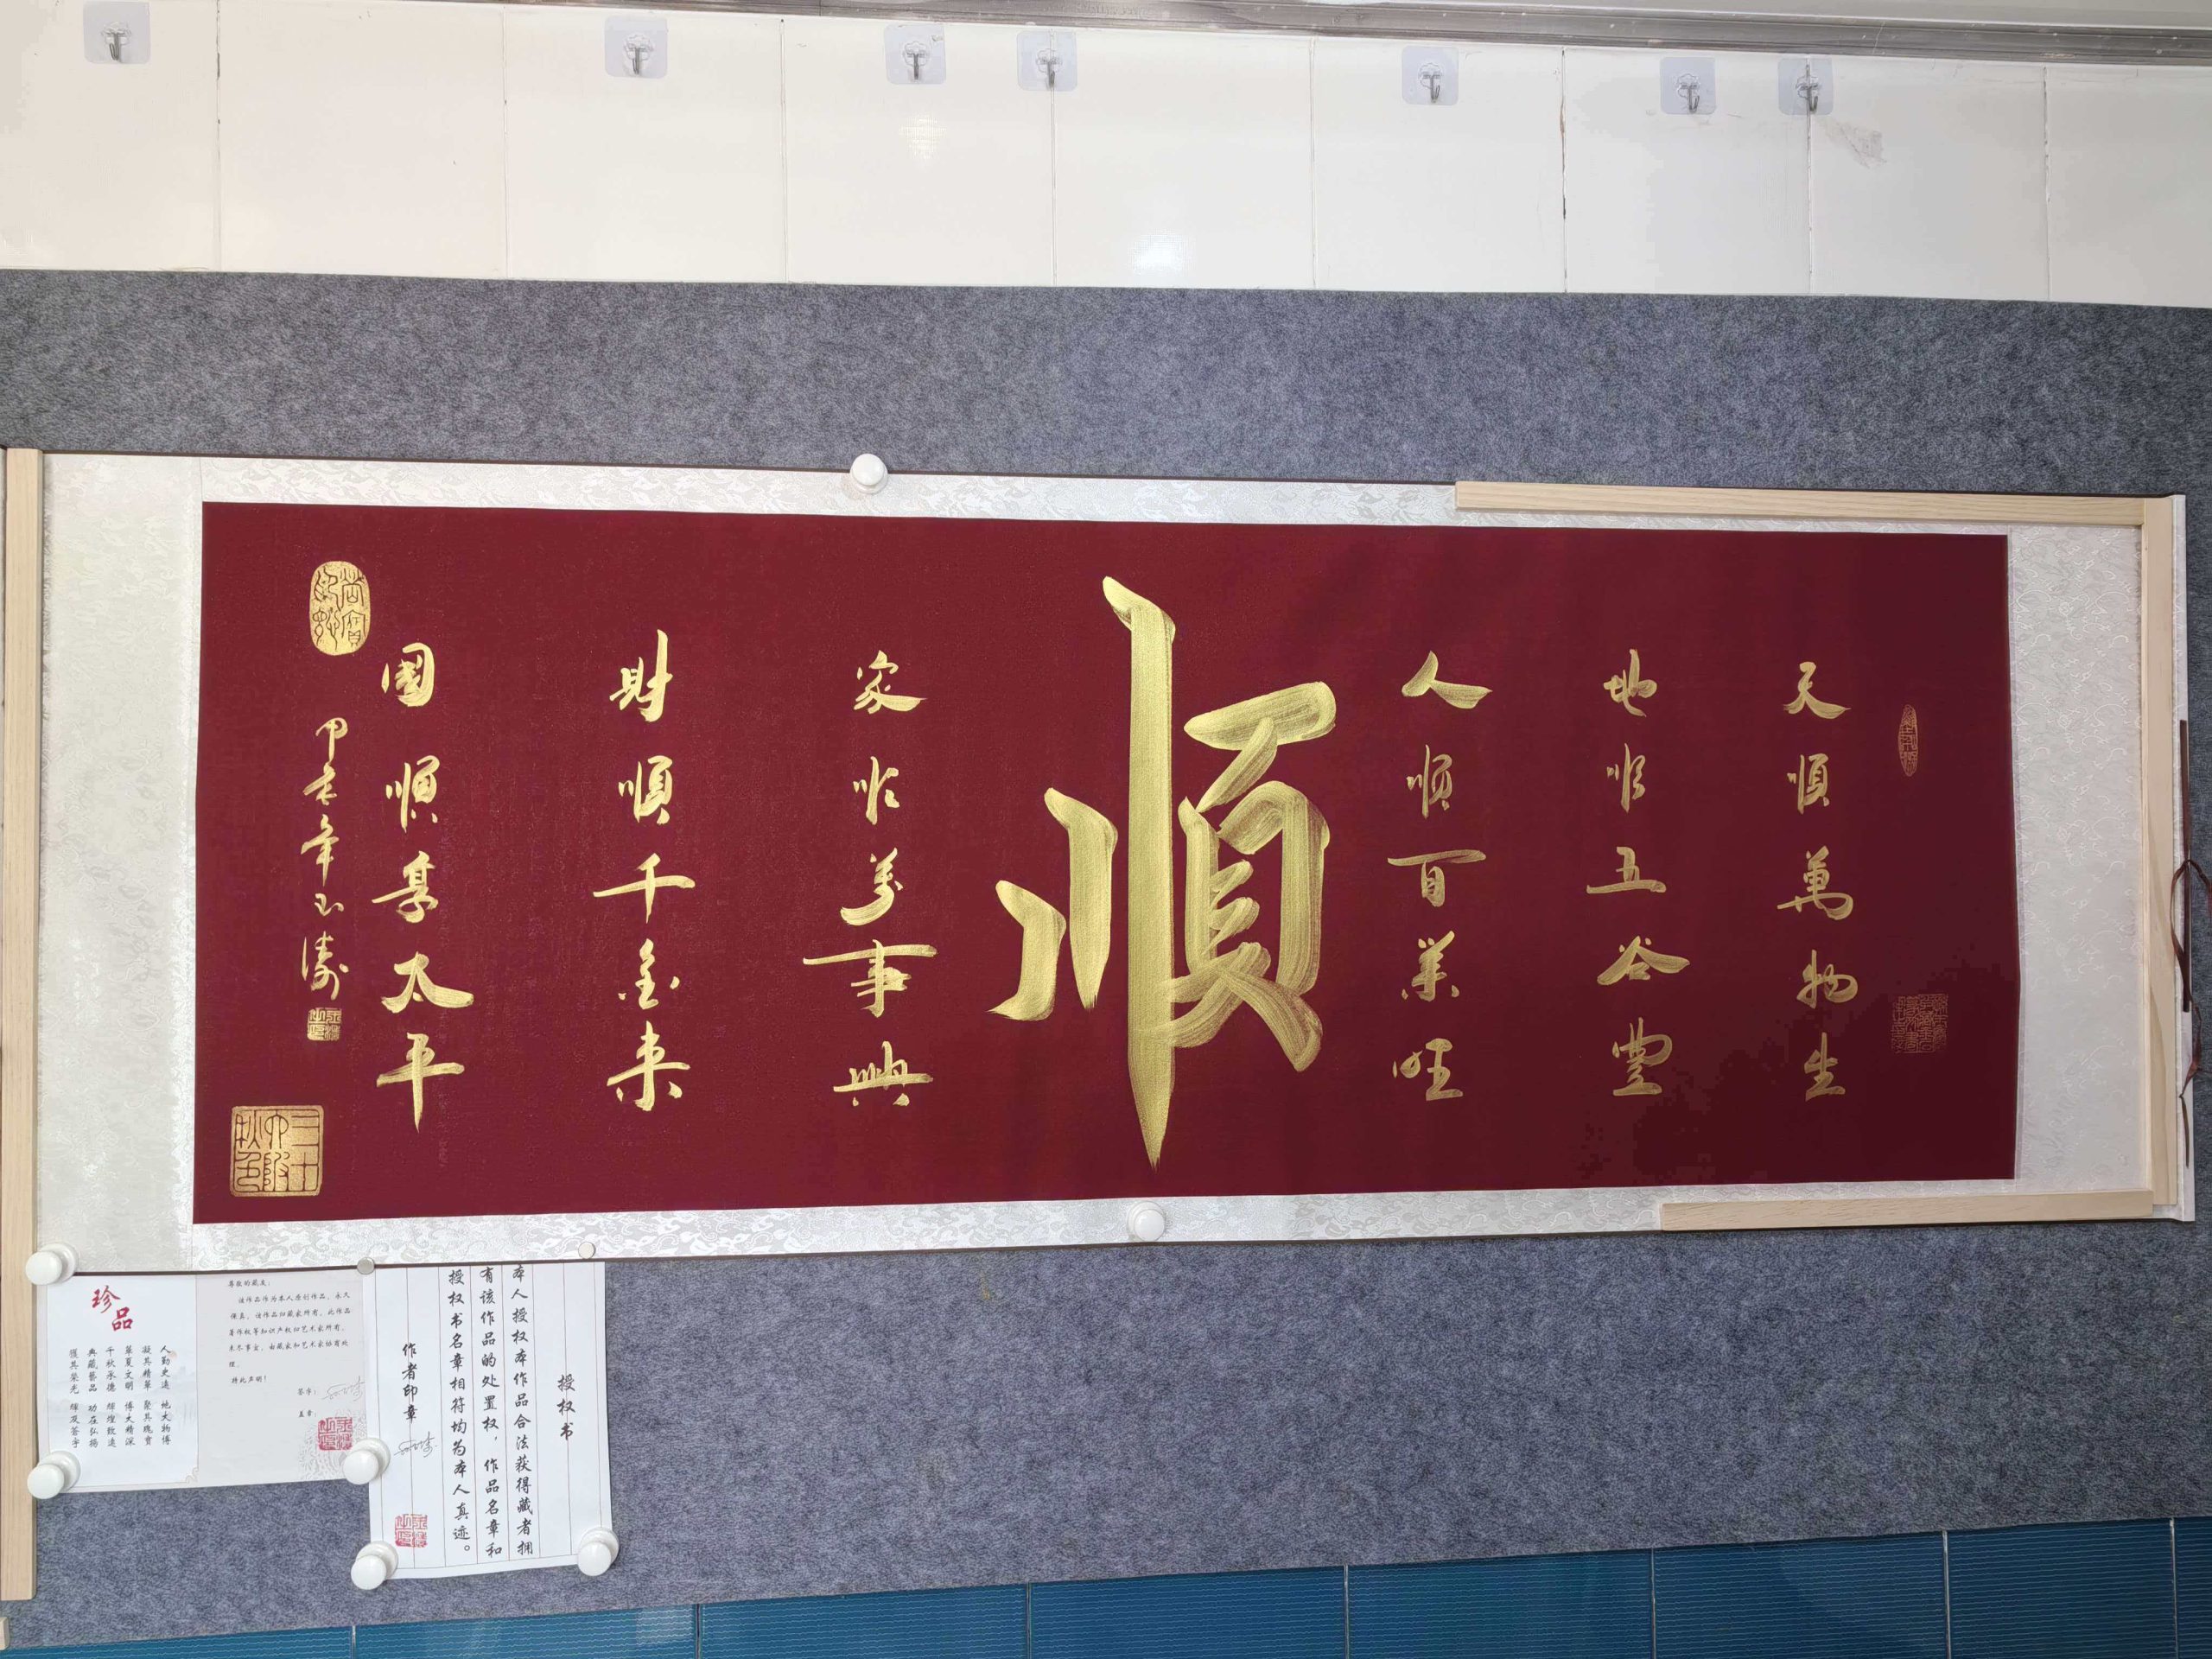 天順萬物生
地順五谷豐
人順百業旺
順
家順萬事興
財順千金來
國順享太平
甲辰年玉濤
珍品
人勤史遠 地大物博
凝其精華 聚其瑰寶
華夏文明 傳大精深
千秋承德 輝煌致遠
典藏藝品 功在弘揚
獲其榮光 輝及荃宇
尊敬的藏友:
该作品作为本人原创作品,永久
保真,该作品归藏家所有,此作品
著作权等知识产权归艺术家所有,
未尽事宜,由藏家和艺术家协商处
理。
特此声明!
签字:
盖章:
授权书
本人授权本作品合法获得藏者拥
有该作品的处置权,作品名章和
授权书名章相符均为本人真迹。
作者印章